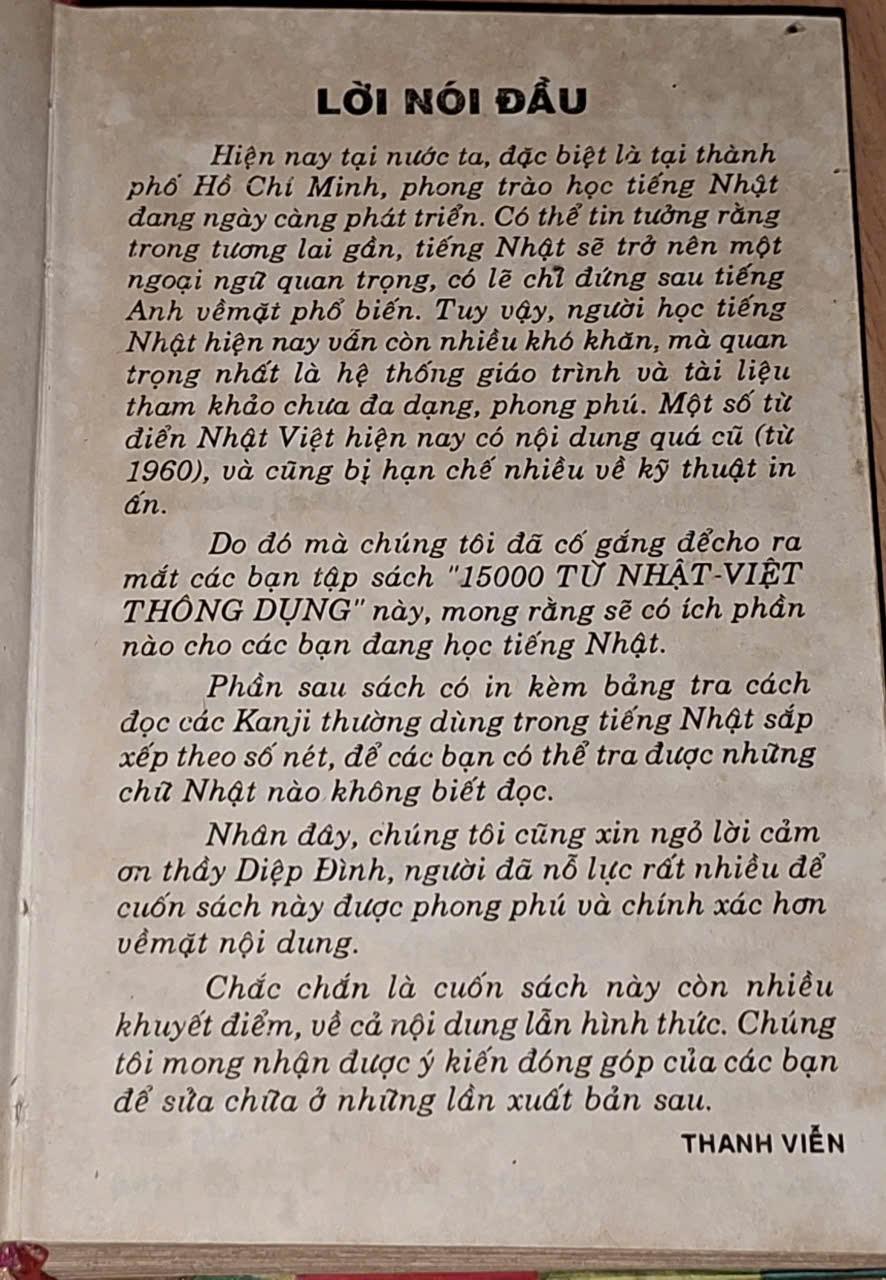 LỜI NÓI ĐẦU
Hiện nay tại nước ta, đặc biệt là tại thành
phố Hồ Chí Minh, phong trào học tiếng Nhật
đang ngày càng phát triển. Có thể tin tưởng rằng
trong tương lai gần, tiếng Nhật sẽ trở nên một
ngoại ngữ quan trọng, có lẽ chỉ đứng sau tiếng
Anh vềmặt phổ biến. Tuy vậy, người học tiếng
Nhật hiện nay vẫn còn nhiều khó khăn, mà quan
trọng nhất là hệ thống giáo trình và tài liệu
tham khảo chưa đa dạng, phong phú. Một số từ
điển Nhật Việt hiện nay có nội dung quá cũ (từ
1960), và cũng bị hạn chế nhiều về kỹ thuật in
ấn.
Do đó mà chúng tôi đã cố gắng đểcho ra
mắt các bạn tập sách "15000 TỪ NHẬT-VIỆT
THÔNG DỤNG" này, mong rằng sẽ có ích phần
nào cho các bạn đang học tiếng Nhật.
Phần sau sách có in kèm bảng tra cách
đọc các Kanji thường dùng trong tiếng Nhật sắp
xếp theo số nét, để các bạn có thể tra được những
chữ Nhật nào không biết đọc.
Nhân đây, chúng tôi cũng xin ngỏ lời cảm
ơn thầy Diệp Đình, người đã nỗ lực rất nhiều để
cuốn sách này được phong phú và chính xác hơn
vềmặt nội dung.
Chắc chắn là cuốn sách này còn nhiều
khuyết điểm, về cả nội dung lẫn hình thức. Chúng
tôi mong nhận được ý kiến đóng góp của các bạn
để sửa chữa ở những lần xuất bản sau.
THANH VIỄN